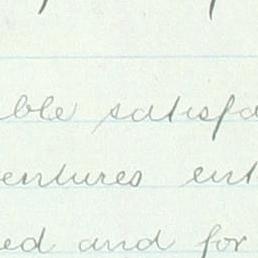 ble satisfa
entures ent
ed and for